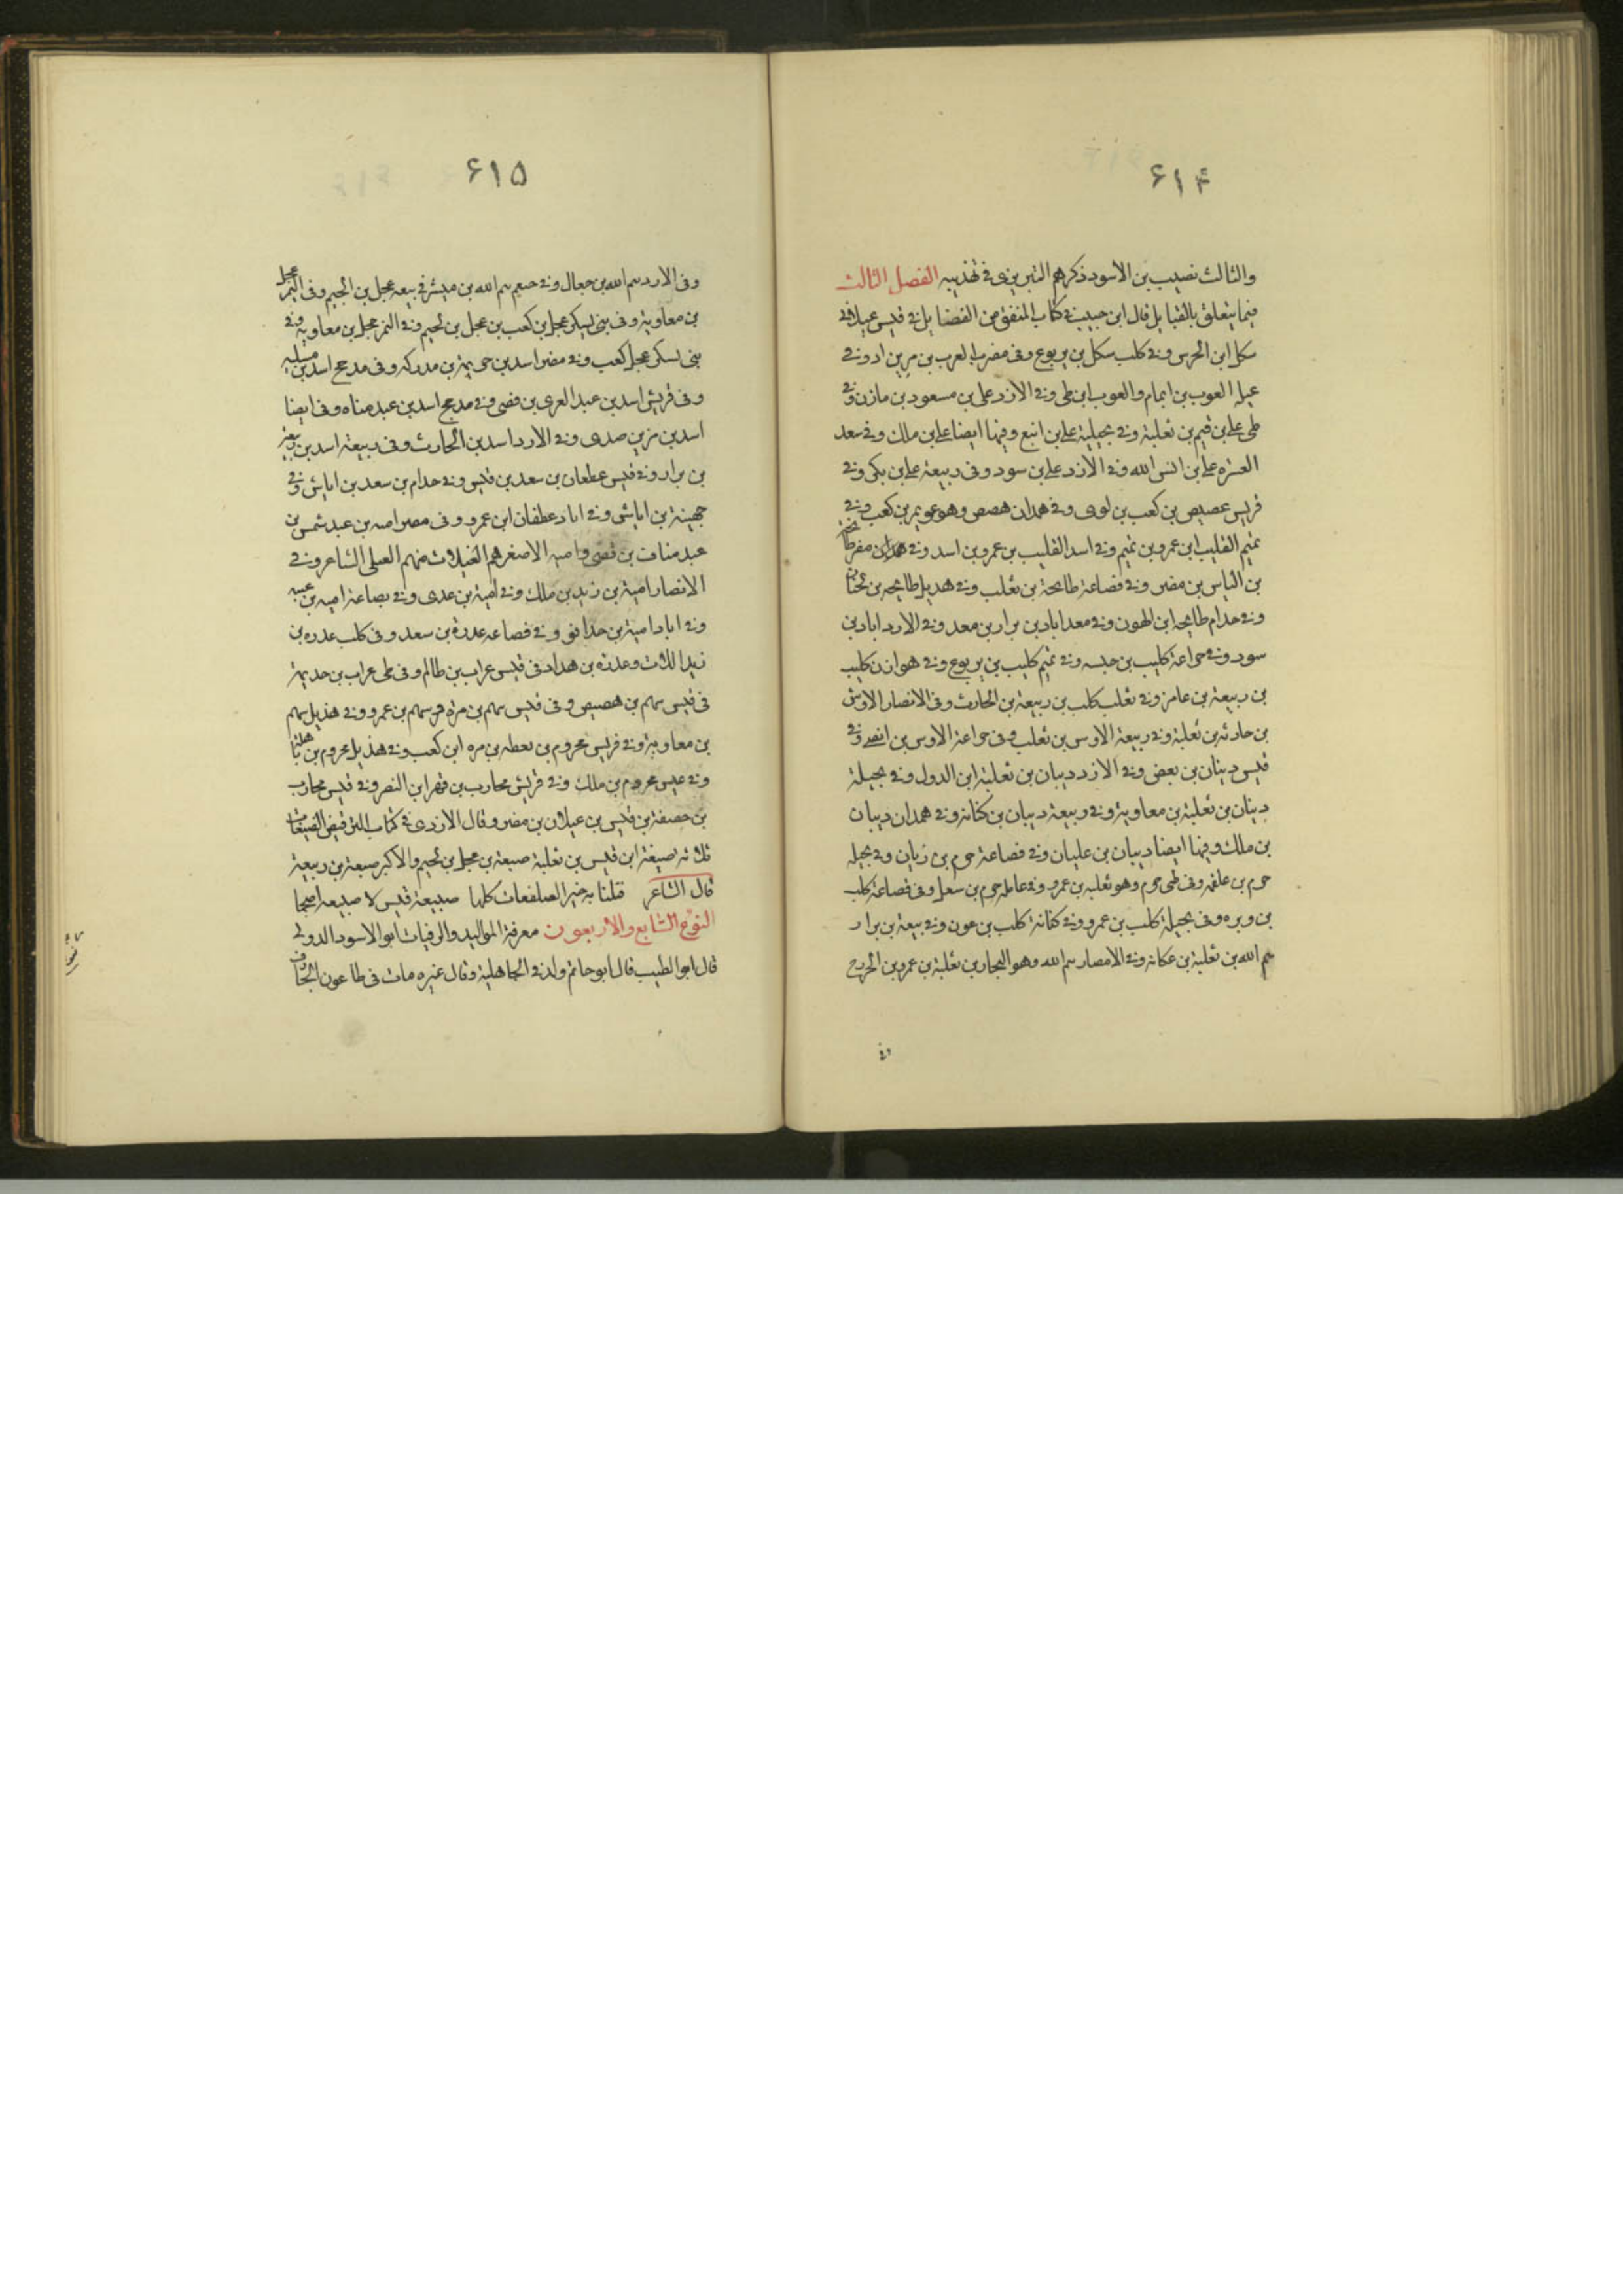 ۶۱۴
والثالث نصيب بن الاسود ذكرهم التبريزى فے تهذيبه الفصل الثالث
فيما يتعلق بالقبايل قال ابن حبيب فے كتاب المتفق من القضايل فے قيس عيلان
سكل ابن الحرس وفے كلب سكل بن يربوع وفى مضر العرب بن مرين اد وفے
عيله العوب بن انمام والعوب ابن طى وفے الازد على بن مسعود بن مازن وفے
طى على بن قيم بن ثعلبة وفے بجيلية على بن انبع وفيها ايضا على بن مالك وفے سعد
العشره على بن انس الله وفے الازد على بن سود وفى ربيعة على بن بكى وفے
قريس عصيص بن كعب بن لوى وفے همدان هصص وهو عويمر بن كعب وفے
تميم القليب ابن عمرو بن تميم وفے اسد القليب بن عمرو بن اسد وفے همدان مفرطا
بن الياس بن مضر وفے قضاعة طابحة بن ثعلب وفے هديل طابحه بن لحيان
وفے حدام طابحه ابن الهون وفے معد اياد بن برار بن معد وفے الارد اياد بن
سود وفے حراعة كليب بن حلسه وفے تميم كليب بن يربوع وفے هوازن كليب
بن ربيعة بن عامر وفے تغلب كلب بن ربيعة بن الحارث وفى الانصار الاوس
بن حارثه بن ثعلبة وفے ربيعة الاوس بن تغلب وفى حراعة الاوس بن افصے وفے
قيس دبنان بن بعض وفے الازد ديبان بن ثعلبة ابن الدول وفے بجيلة
دبنان بن ثعلبة بن معاوية وفے ربيعة ديبان بن كنانه وفے همدان ديبان
بن ملك وفيها ايضا ديبان بن عليان وفے قضاعة حرم بن زبان وفے بجيله
حرم بن علقمه وفى طى حرم وهو ثعلبه بن عمرو وفے عامله حرم بن سعل وفى قضاعة كلب
بن وبره وفى بجيلة كلب بن عمرو وفے كنانة كلب بن عون وفے ربيعة بن برار
يم الله بن ثعلبة بن عكانه وفے الامصار يم الله وهو النجار بن ثعلبة بن عمرو بن الخزرج
وفے
۶۱۵
وفى الارد يم الله بن حبال وفے حنعيم يم الله بن مبشر فے ربيعه عجل بن الجيم وفى النمر عجل
بن معاوية وفى بنى ليسكر عجل بن كعب بن عجل بن لحيم وفے النمر عجل بن معاوية وفے
بنى يسكر عجل كعب وفے مضر اسد بن حريمة بن مدركه وفى مدحج اسد بن مسليه
وفى قريش اسد بن عبد العرى بن قصى وفے مدحج اسد بن عبد مناه وفى ايضا
اسد بن مزين صدى وفے الارد اسد بن الحارث وفى ربيعة اسد بن ربيعة
بن برار وفے قيس عطعان بن سعد بن قيس وفے حدام بن سعد بن اياس وفے
جهينة بن اياش وفے اياد عطفان ابن عمرو وفى مصر اميه بن عبد شمس بن
عبد مناف بن قصى واميه الاصغرهم العيلات منهم العبلى الشاعر وفے
الانصار امية بن زيد بن ملك وفے امية بن عدى وفے بصاعة اميه بن عيبه
وفے اياد امية بن حدافق وفے قصاعه عدرة بن سعد وفى كلب عدره بن
زيد اللات وعدده بن هداد فى قيس عراب بن طالم وفى طى عراب بن حديمة
فى قيس سهم بن هصيص وفى قيس سهم بن مرة مرسهم بن عمرو وفے هذيل سهم
بن معاوية وفے قريس محروم بن يعطه بن مره ابن كعب وفے هذيل محروم بن باهلة
وفے عبس محروم بن ملك وفے قريش محارب بن فهر ابن النصر وفے قيس محارب
بن حصفة بن قيس بن عيلان بن مضر وقال الازدى فے كتاب الترقيص الضبيعات
ثلاثه ضبيعة ابن قيس بن ثعلبة ضبيعة بن عجل بن لحيم والاكبر ضبيعة بن ربيعة
قال الشاعر قتلنا به خير الضبيعات كلها ضبيعة قيس لا ضبيعه اضجما
النوع السابع والاربعون معرفة المواليد والوفيات ابو الاسود الدولے
قال ابو الطيب قال ابو حاتم ولد فے الجاهلية وقال غيره مات فى طاعون الجارف